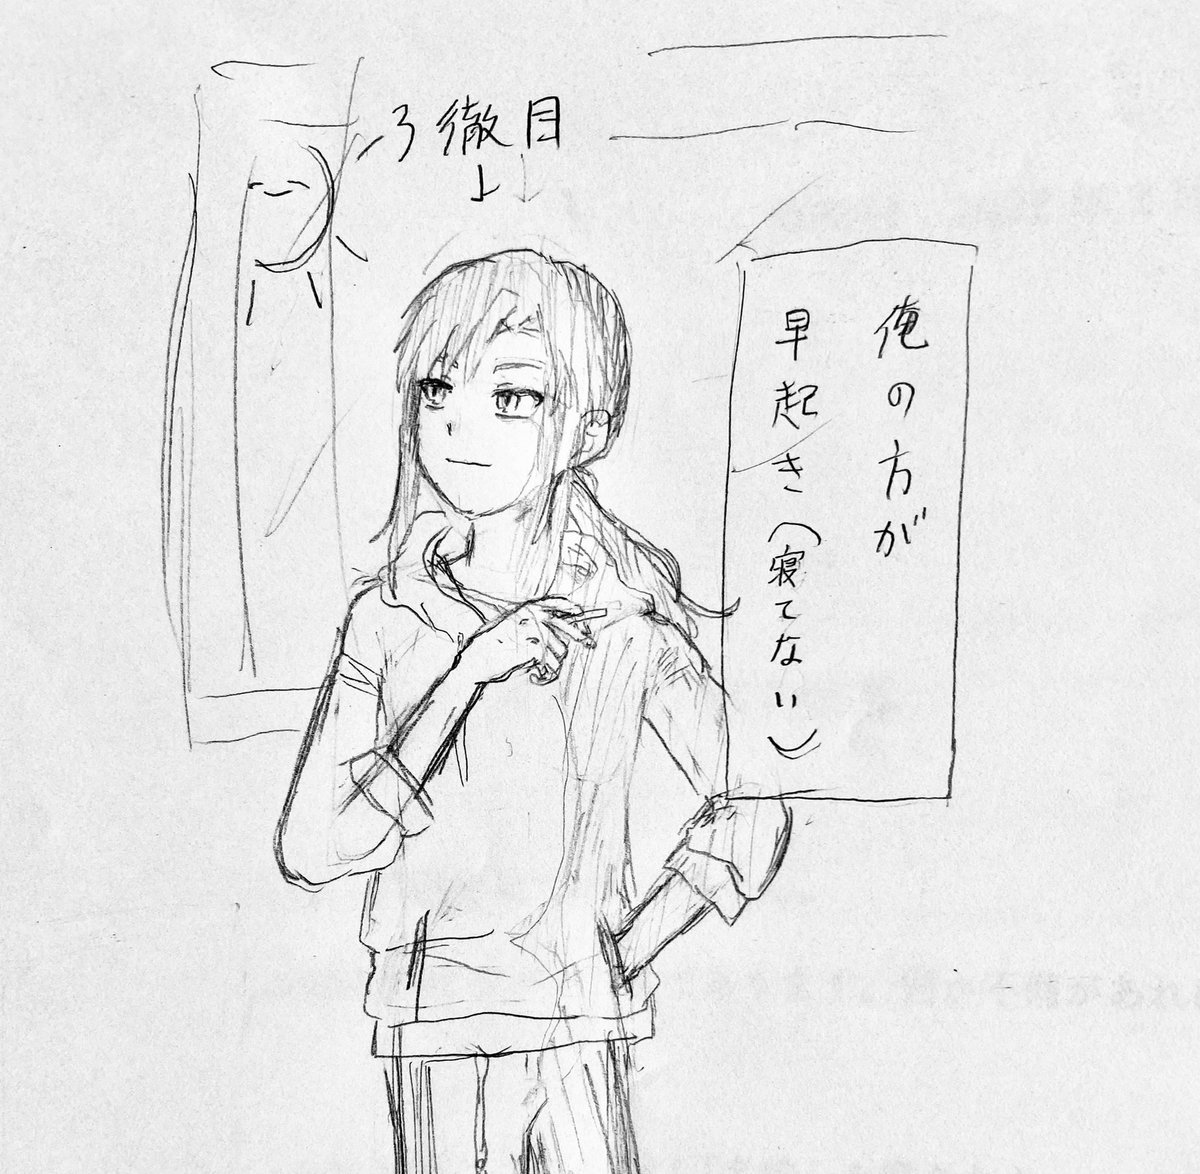 3徹目
俺の方が
早起き(寝てない)